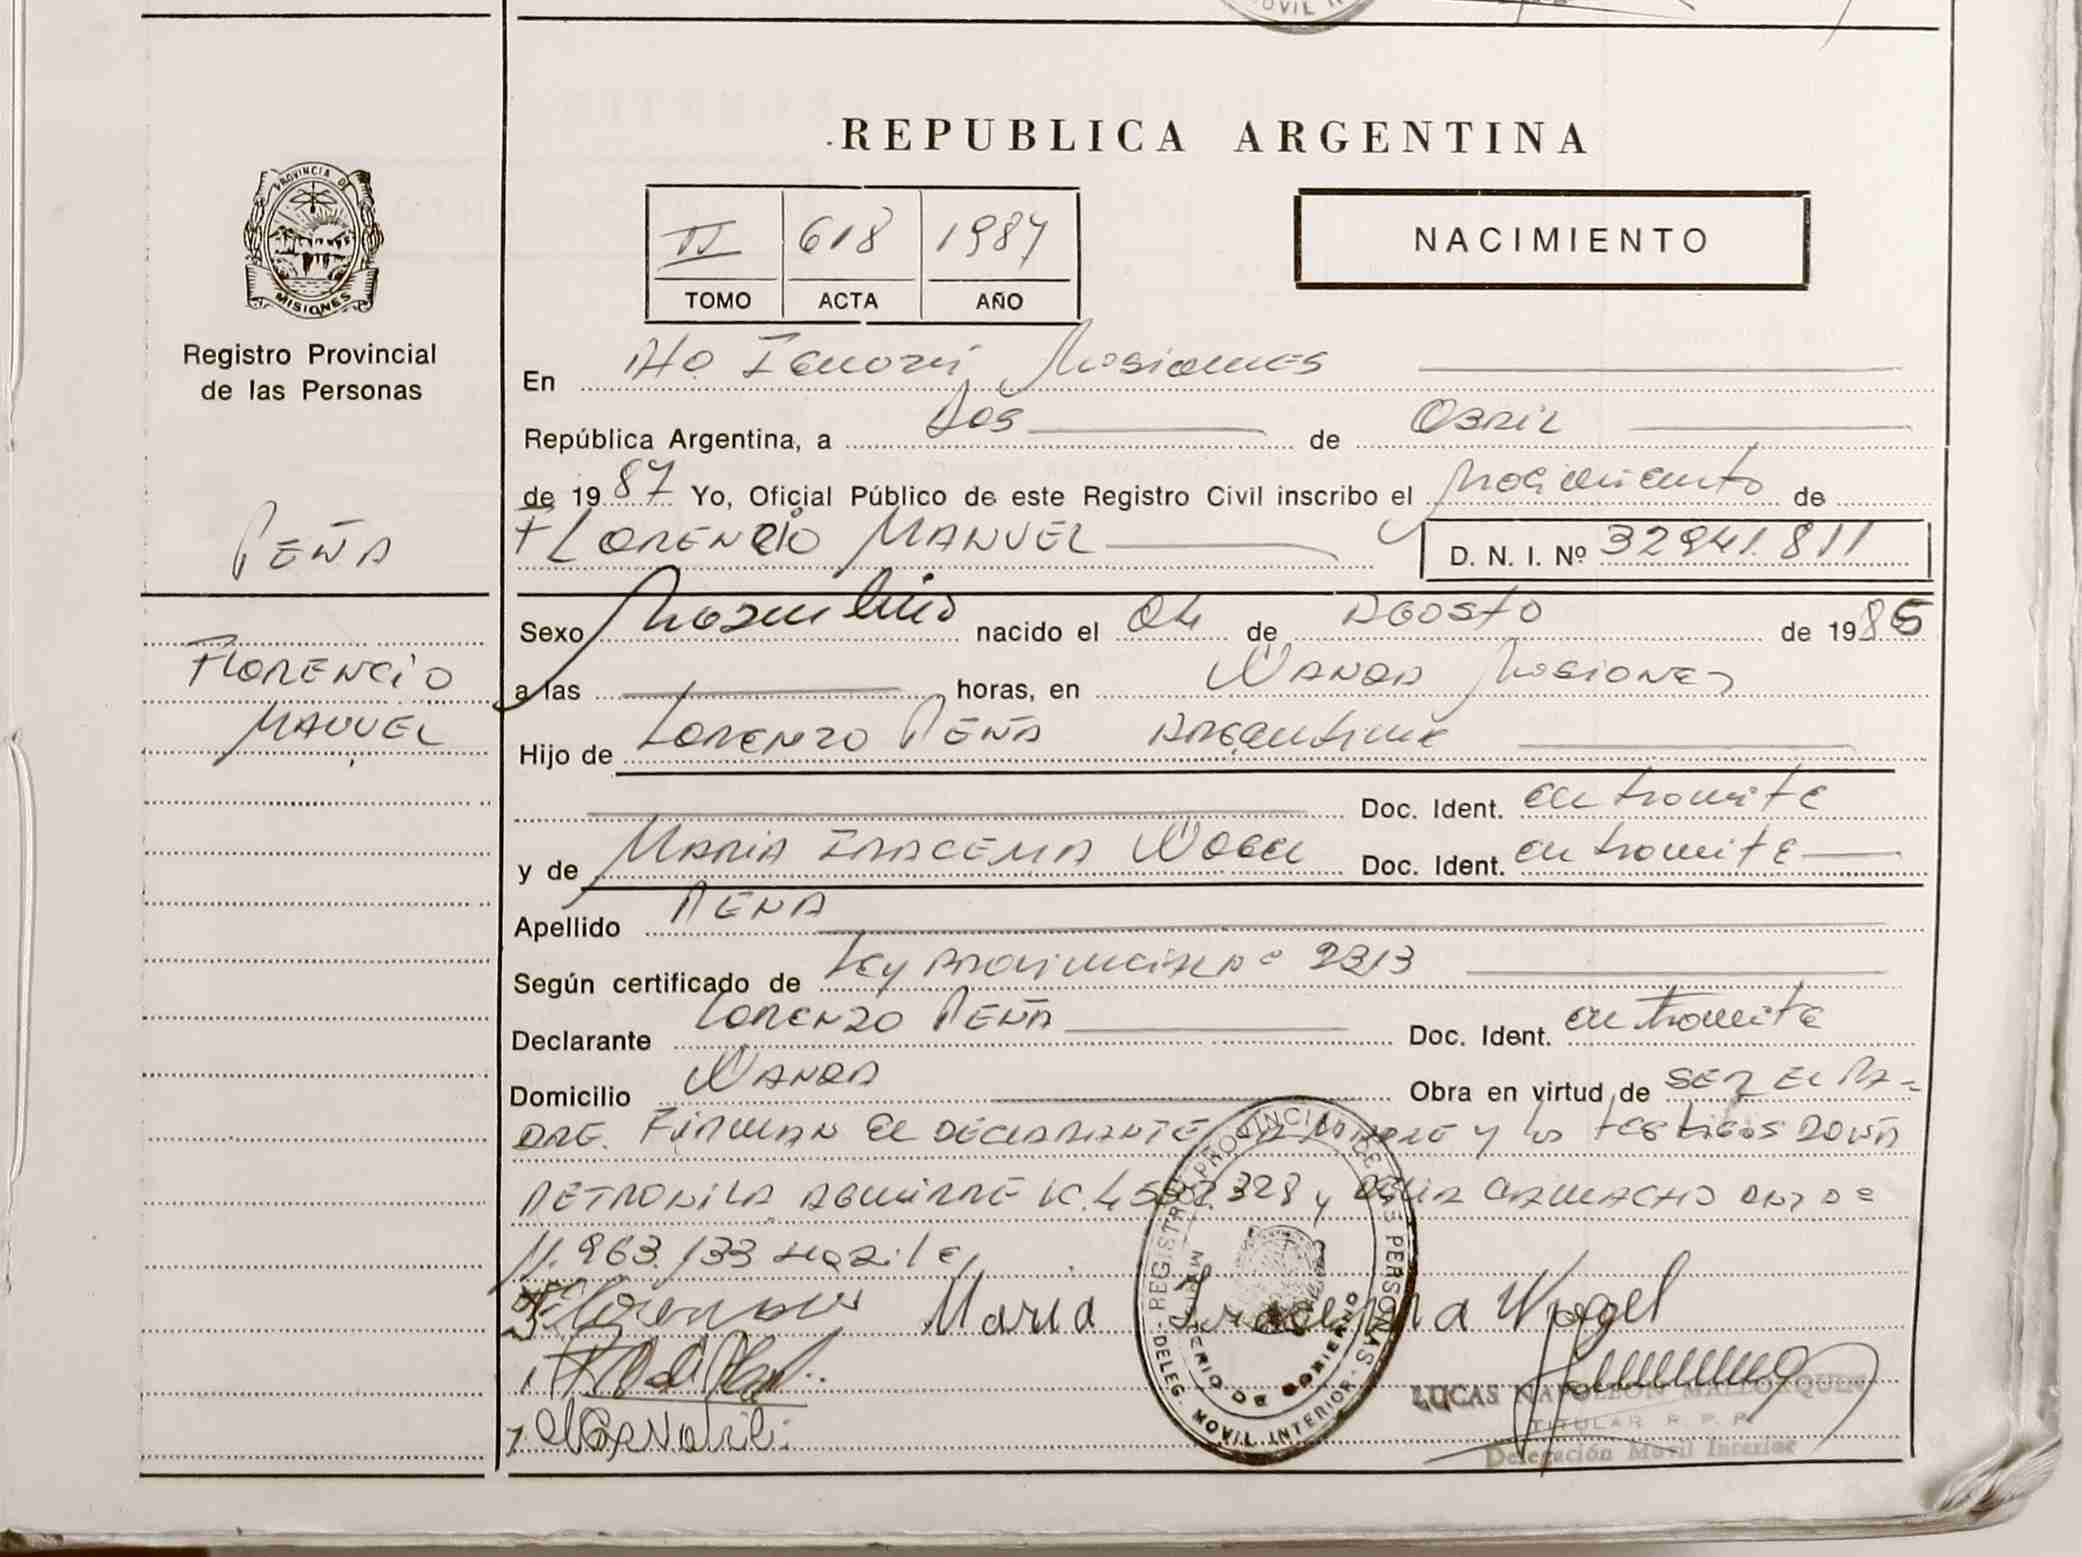 REPUBLICA ARGENTINA
PROVINCIA DE
MISIONES
Registro Provincial
de las Personas
II 618 1987
TOMO ACTA AÑO
NACIMIENTO
En Pto Iguazú Misiones
República Argentina, a dos de Abril
de 1987 Yo, Oficial Público de este Registro Civil inscribo el Nacimiento de
FLORENCIO MANUEL D. N. I. Nº 32941.811
PEÑA
FLORENCIO
MANUEL
Sexo Masculino nacido el 04 de AGOSTO de 1986
a las horas, en WANDA Misiones
Hijo de LORENZO PEÑA Argentino
Doc. Ident. en tramite
y de MARIA IRACEMA WOGEL Doc. Ident. en tramite
Apellido PEÑA
Según certificado de Ley PROVINCIAL Nº 2313
Declarante LORENZO PEÑA Doc. Ident. en tramite
Domicilio WANDA Obra en virtud de SER EL PA-
DRE. FIRMAN EL DECLARANTE LA MADRE y los testigos DOÑA
PETRONILA AGUIRRE y CAMACHO
Maria Iracema Wogel
REGISTRO PROVINCIAL DE LAS PERSONAS
MINISTERIO DE GOBIERNO
DELEG. MOVIL INTERIOR
LUCAS NAPOLEON MALLORQUIN
TITULAR R. P. P.
Delegación Movil Interior